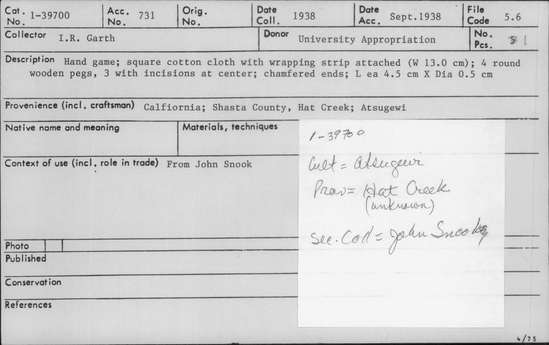 Cat. No. 1-39700 Acc. No. 731 Orig. No. Date Coll. 1938 Date Acc. Sept.1938 File Code 5.6
Collector I.R. Garth Donor University Appropriation No. Pcs.
Description Hand game; square cotton cloth with wrapping strip attached (W 13.0 cm); 4 round
wooden pegs, 3 with incisions at center; chamfered ends; L ea 4.5 cm X Dia 0.5 cm
Provenience (incl. craftsman) Calfiornia; Shasta County, Hat Creek; Atsugewi
Native name and meaning Materials, techniques
1-39700
Cult = Atsugewi
Prov = Hat Creek
(unknown)
Sec. Coll = John Snook
Context of use (incl. role in trade) From John Snook
Photo
Published
Conservation
References
4/75